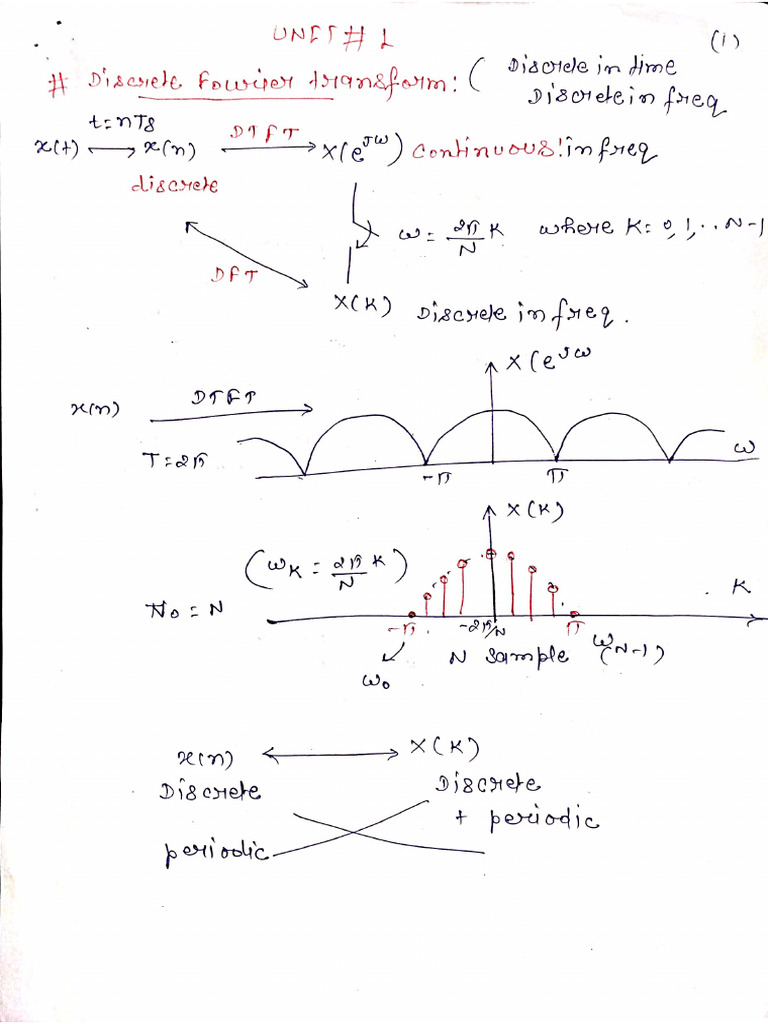 UNIT # 1
(1)
# Discrete Fourier transform: ( Discrete in time
Discrete in freq
t = nTs
x(t) ⟷ x(n) ⟷ DTFT X(e^jω) continuous! in freq
discrete
ω = 2π/N K where K = 0, 1, .. N-1
DFT
X(K) Discrete in freq.
X(e^jω
x(n) DTFT
T = 2π
-π π ω
X(K)
(ω_K = 2π/N K)
N₀ = N
K
-π -2π/N π
ω₀ N sample ω(N-1)
x(n) ⟷ X(K)
Discrete Discrete
+ periodic
periodic